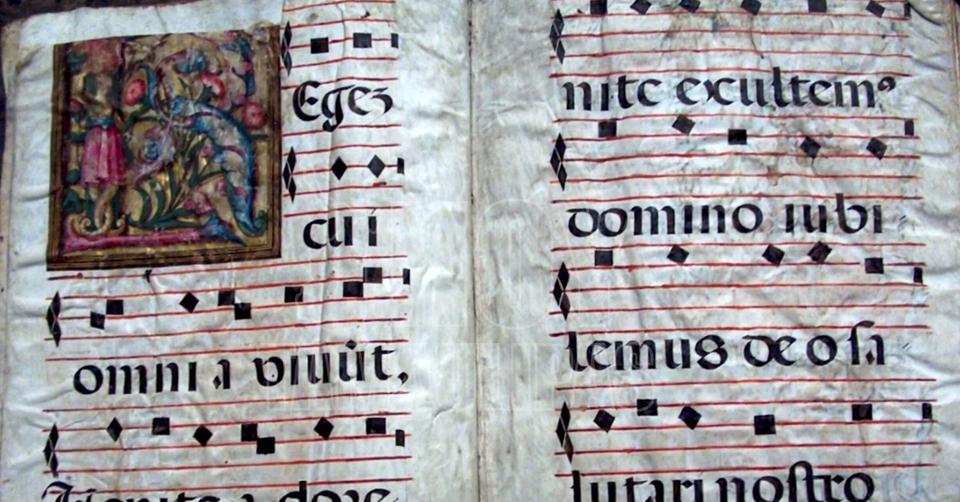 Egez
cui
omnia viuũt,
Venite adore
nite exultemꝰ
domino iubi
lemus deo ſa
lutari noſtro